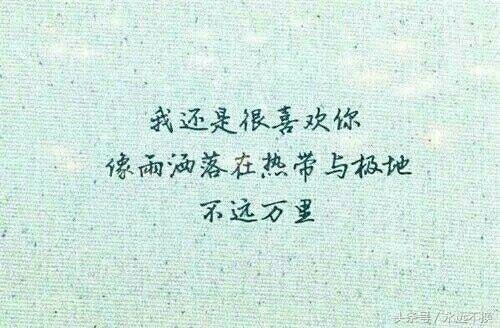 我还是很喜欢你
像雨洒落在热带与极地
不远万里
头条号/永远不换